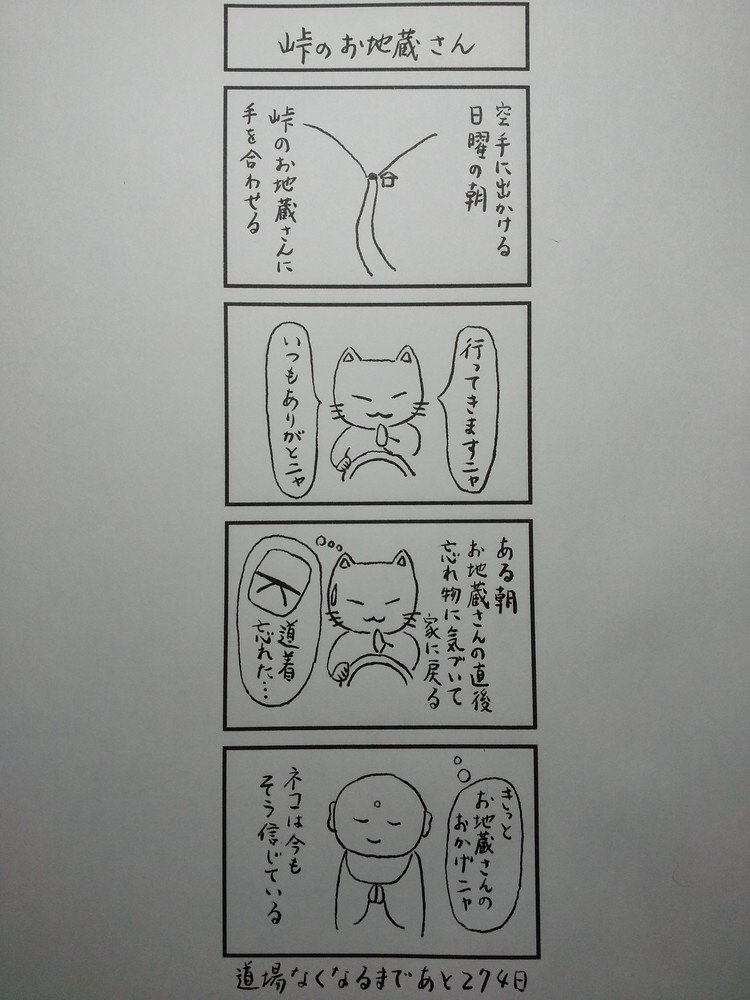 峠のお地蔵さん
空手に出かける
日曜の朝
峠のお地蔵さんに
手を合わせる
行ってきますニャ
いつもありがとニャ
ある朝
お地蔵さんの直後
忘れ物に気づいて
家に戻る
道着
忘れた…
きっと
お地蔵さんの
おかげニャ
ネコは今も
そう信じている
道場なくなるまであと274日